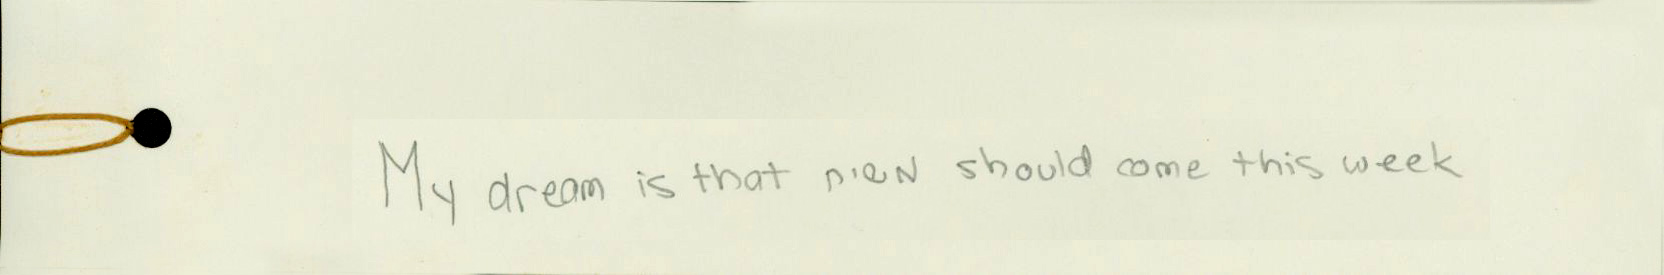 My dream is that משיח should come this week